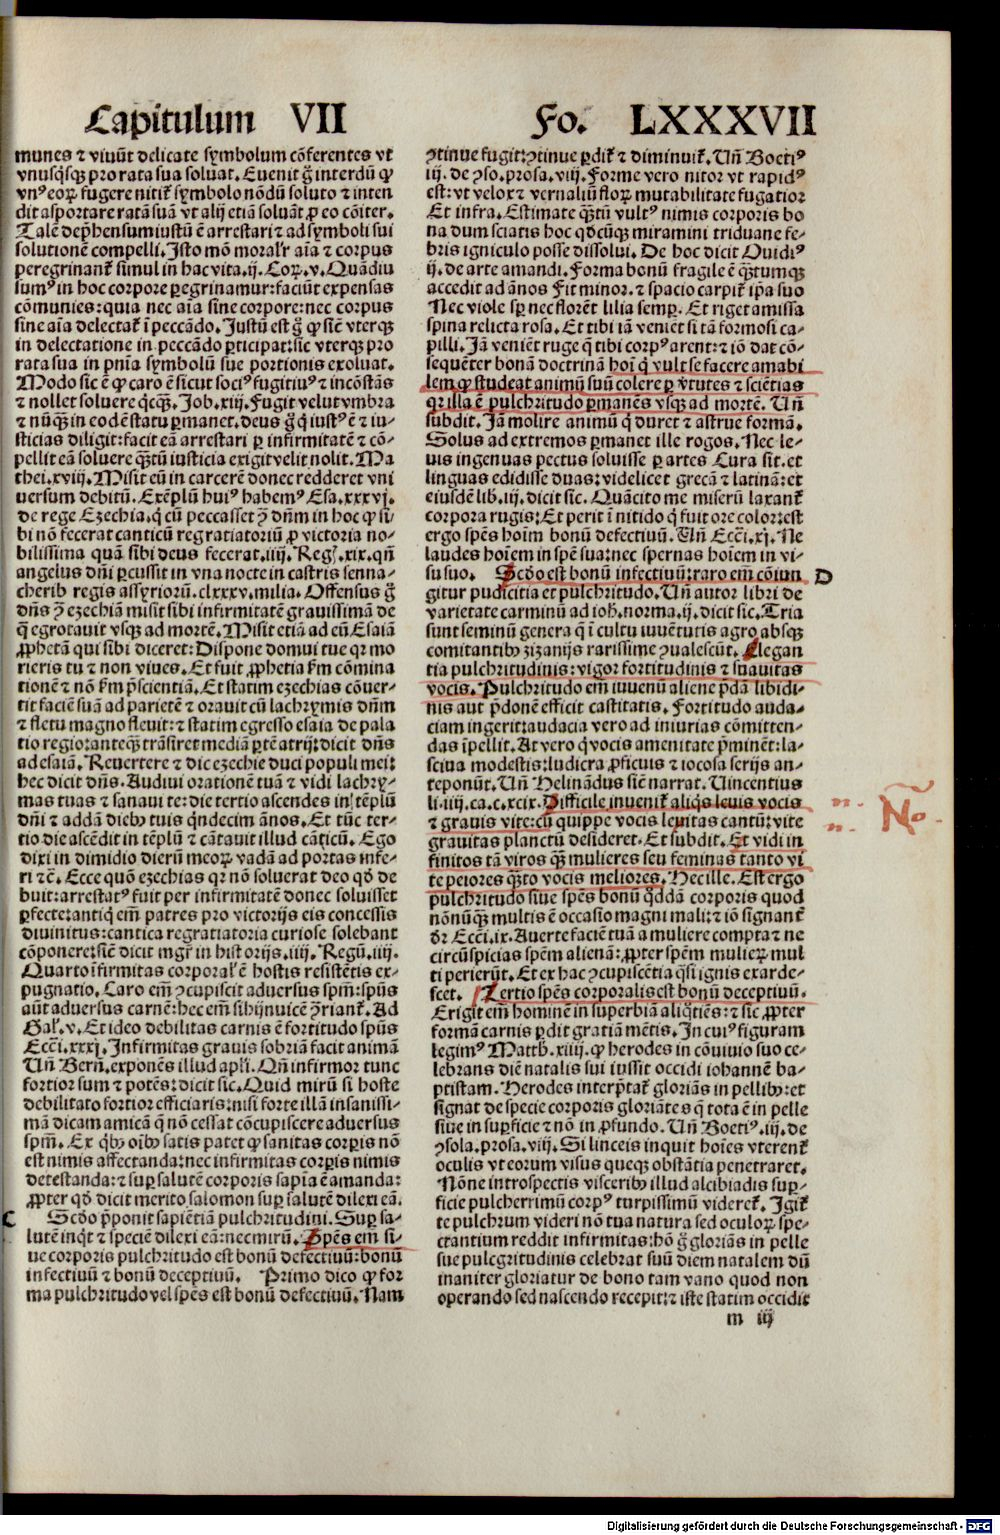 Capitulum VII
Fo. LXXXVII
munes ⁊ viuūt delicate symbolum cōferentes vt
vnusq̄sq̄ pro rata sua soluat. Euenit g̊ interdū ꝙ
vnꝰ eoꝝ fugere nitit̄ symbolo nōdū soluto ⁊ inten
dit asportare ratā suā vt alij etiā soluāt ꝓ eo cōiter.
Talē dep̄hensum iustū ē arrestari ⁊ ad symboli sui
solutionē compelli. Isto mō moralr̄ aīa ⁊ corpus
peregrinant̄ simul in hac vita. ij. Coꝝ. v. Quādiu
sumꝰ in hoc corpore ꝑegrinamur: faciūt expensas
cōmunies: quia nec aīa sine corpore: nec corpus
sine aīa delectat̄ ī peccādo. Justū est g̊ ꝙ sic̄ vterq̄
in delectatione in peccādo ꝑticipat: sic vterq̄ pro
rata sua in pnīa symbolū sue portionis exoluat.
Modo sic ē ꝙ caro ē sicut sociꝰ fugitiuꝰ ⁊ incōstās
⁊ nollet soluere q̄cq̄. Job. xiij. Fugit velut vmbra
⁊ nūq̄ in eodē statu ꝑmanet. deus g̊ q̄ iustꝰ ē ⁊ iu-
sticias diligit: facit eā arrestari ꝑ infirmitatē ⁊ cō-
pellit eā soluere q̄tū iusticia exigit velit nolit. Ma
thei. xviij. Misit eū in carcerē donec redderet vni
uersum debitū. Exēplū huiꝰ habemꝰ Esa. xxxvj.
de rege Ezechia. q̄ cū peccasset ꝯ̄ dn̄m in hoc ꝙ si
bi nō fecerat canticū regratiatoriū ꝓ victoria no-
bilissima quā sibi deus fecerat. iiij. Reg. xix. qn̄
angelus dn̄i ꝑcussit in vna nocte in castris senna-
cherib regis assyrioꝝ. clxxxv. milia. Offensus g̊
dn̄s ꝯ̄ ezechiā misit sibi infirmitatē grauissimā de
q̄ egrotauit vsq̄ ad mortē. Misit etiā ad eū Esaiā
ꝓphetā qui sibi diceret: Dispone domui tue qꝛ mo
rieris tu ⁊ non viues. Et fuit ꝓphetia ẜm cōmina
tionē ⁊ nō ẜm p̄scientiā. Et statim ezechias cōuer-
tit faciē suā ad parietē ⁊ orauit cū lachrymis dn̄m
⁊ fletu magno fleuit: ⁊ statim egresso esaia de pala
tio regio: anteq̄ trāsiret mediā ꝑtē atrij: dicit dn̄s
ad esaiā. Reuertere ⁊ dic ezechie duci populi mei:
hec dicit dn̄s. Audiui orationē tuā ⁊ vidi lachry-
mas tuas ⁊ sanaui te: die tertio ascendes in tēplū
dn̄i ⁊ addā diebꝰ tuis q̄ndecim ānos. Et tūc ter-
tio die ascēdit in tēplū ⁊ cātauit illud cāticū. Ego
dixi in dimidio dierū meoꝝ vadā ad portas infe-
ri ⁊ c̄. Ecce quō ezechias qꝛ nō soluerat deo qd̄ de
buit: arrestatꝰ fuit per infirmitatē donec soluisset
ꝑfecte: antiq̄ em̄ patres pro victorijs eis concessis
diuinitus: cantica regratiatoria curiose solebant
cōponere: sic̄ dicit mgr̄ in historijs. iiij. Regū. iiij.
Quarto īfirmitas corporal̄ ē hostis resistētis ex-
pugnatio. Caro em̄ ꝯcupiscit aduersus spm̄: spūs
aūt aduersus carnē: hec em̄ sibijnuicē ꝯ̄riant̄. Ad
Gal̄. v. Et ideo debilitas carnis ē fortitudo spūs
Ecci. xxxj. Infirmitas grauis sobriā facit animā
Un̄ Bern̄. exponēs illud apl̄i. Qn̄ infirmor tunc
fortior sum ⁊ potēs: dicit sic. Quid mirū si hoste
debilitato fortior efficiaris: nisi forte illā insanissi-
mā dicam amicā q̄ nō cessat cōcupiscere aduersus
spm̄. Ex q̄bꝰ oībꝰ satis patet ꝙ sanitas corꝑis nō
est nimis affectanda: nec infirmitas corꝑis nimis
detestanda: ⁊ suꝑ salutē corporis sapīa ē amanda:
ꝓpter qd̄ dicit merito salomon suꝑ salutē dilexi eā.
C
Scd̄o p̄ponit sapiētiā pulchritudini. Suꝑ sa-
lutē inq̄t ⁊ speciē dilexi eā: nec mirū. Spēs em̄ si-
ue corporis pulchritudo est bonū defectiuū: bonū
infectiuū ⁊ bonū deceptiuū. Primo dico ꝙ for
ma pulchritudo vel spēs est bonū defectiuū. Nam
ꝯtinue fugit: ꝯtinue ꝑdit̄ ⁊ diminuit̄. Un̄ Boetiꝰ
iij. de ꝯso. prosa. viij. Forme vero nitor vt rapidꝰ
est: vt velox ⁊ vernaliū floꝝ mutabilitate fugatior
Et infra. Estimate q̄tū vultꝰ nimis corporis bo
na dum sciatis hoc qd̄cūq̄ miramini triduane fe-
bris igniculo posse dissolui. De hoc dicit Ouidiꝰ
ij. de arte amandi. Forma bonū fragile ē q̄tumq̄
accedit ad ānos Fit minor. ⁊ spacio carpit̄ ip̄a suo
Nec viole sꝑ nec florēt lilia semꝑ. Et riget amissa
spina relicta rosa. Et tibi iā veniēt si tā formosi ca-
pilli. Jā veniēt ruge q̄ tibi corpꝰ arent: ⁊ iō dat cō-
sequēter bonā doctrinā hoī q̄ vult se facere amabi
lem ꝙ studeat animū suū colere ꝑ v̄tutes ⁊ sciētias
qꝛ illa ē pulchritudo ꝑmanēs vsq̄ ad mortē. Un̄
subdit. Jā molire animū q̄ duret ⁊ astrue formā.
Solus ad extremos ꝑmanet ille rogos. Nec le-
uis ingenuas pectus soluisse ꝑ artes Cura sit. et
linguas edidisse duas: videlicet grecā ⁊ latinā: et
eiusdē lib. iij. dicit sic. Quācito me miserū laxant̄
corpora rugis: Et perit ī nitido q̄ fuit ore color: est
ergo spēs hoīm bonū defectiuū. Un̄ Ecci. xj. Ne
laudes hoīem in spē sua: nec spernas hoīem in vi-
su suo. Scd̄o est bonū infectiuū: raro em̄ cōiun
D
gitur pudicitia et pulchritudo. Un̄ autor libri de
varietate carminū ad ioh. norma. ij. dicit sic. Tria
sunt seminū genera q̄ ī cultu iuuētutis agro absq̄
comitantibꝰ zizanijs rarissime ꝯualescūt. Elegan
tia pulchritudinis: vigor fortitudinis ⁊ suauitas
vocis. Pulchritudo em̄ iuuenū aliene p̄dā libidi-
nis aut p̄donē efficit castitatis. Fortitudo auda-
ciam ingerit: audacia vero ad iniurias cōmitten-
das īpellit. At vero q̄ vocis amenitate p̄minēt: la-
sciua modestis: ludicra ꝓficuis ⁊ iocosa serijs an-
teponūt. Un̄ Helinādus sic̄ narrat. Uincentius
li. iiij. ca. c. xcix. Difficile inuenit̄ aliq̄s leuis vocis
⁊ grauis vite: cū quippe vocis leuitas cantū: vite
grauitas planctū desideret. Et subdit. Et vidi in
finitos tā viros q̄ mulieres seu feminas tanto vi
te peiores q̄to vocis meliores. Hec ille. Est ergo
pulchritudo siue spēs bonū q̄ddā corporis quod
nōnūq̄ multis ē occasio magni mali: ⁊ iō signant̄
dr̄ Ecci. ix. Auerte faciē tuā a muliere compta ⁊ ne
circūspicias spēm alienā: ꝓpter spēm mulieꝝ mul
ti perierūt. Et ex hac ꝯcupiscētia q̄si ignis exarde-
scet. Tertio spēs corporalis est bonū deceptiuū.
Erigit em̄ hominē in superbiā aliq̄tiēs: ⁊ sic ꝓpter
formā carnis ꝑdit gratiā mētis. In cuiꝰ figuram
legimꝰ Matth. xiiij. ꝙ herodes in cōuiuio suo ce-
lebrans diē natalis sui iussit occidi iohannē ba-
ptistam. Herodes interp̄tat̄ gloriās in pellibꝰ: et
signat de specie corporis gloriātes q̄ tota ē in pelle
siue in suꝑficie ⁊ nō in ꝓfundo. Un̄ Boetiꝰ. iij. de
ꝯsola. prosa. viij. Si linceis inquit hoīes vterent̄
oculis vt eorum visus queq̄ obstātia penetraret.
Nōne introspectis visceribꝰ illud alcibiadis suꝑ-
ficie pulcherrimū corpꝰ turpissimū videret̄. Igit̄
te pulchrum videri nō tua natura sed oculoꝝ spe-
ctantium reddit infirmitas: hō g̊ gloriās in pelle
sue pulcgritudinis celebrat suū diem natalem dū
inaniter gloriatur de bono tam vano quod non
operando sed nascendo recepit: ⁊ iste statim occidit
m iij
Digitalisierung gefördert durch die Deutsche Forschungsgemeinschaft - DFG